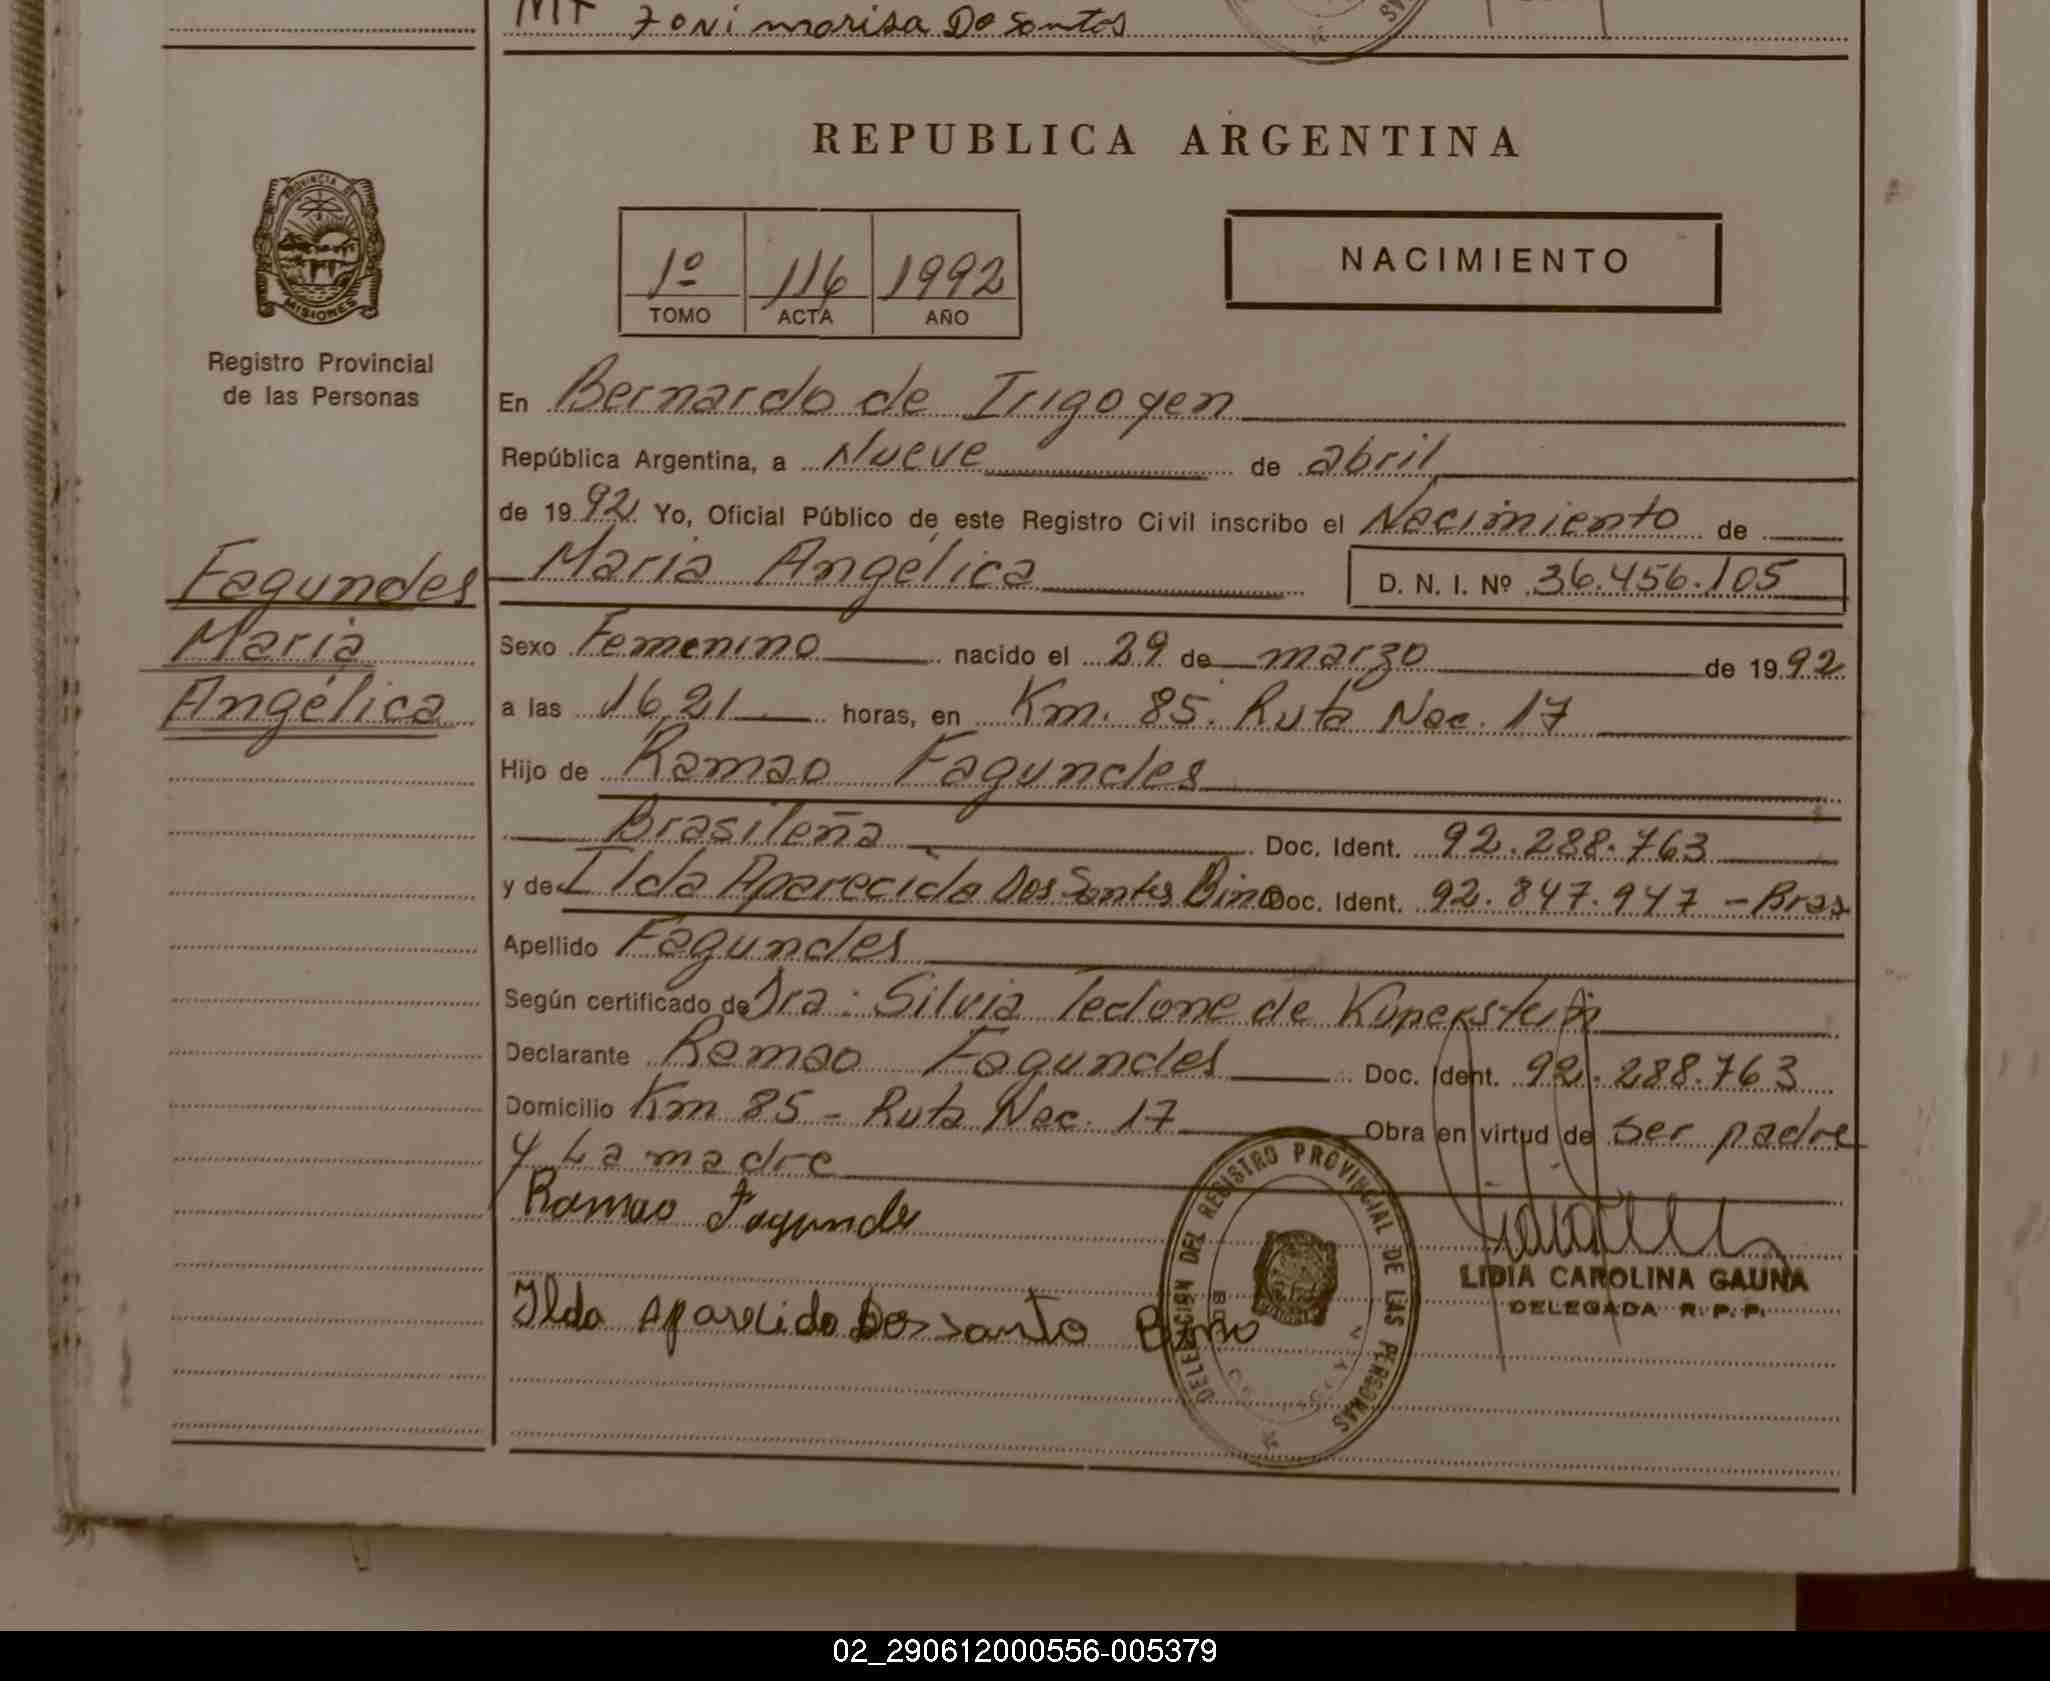 Zoni marisa Do Santos
REPUBLICA ARGENTINA
PROVINCIA DE
MISIONES
Registro Provincial
de las Personas
1º 116 1992
TOMO ACTA AÑO
NACIMIENTO
En Bernardo de Irigoyen
República Argentina, a Nueve de abril
de 1992 Yo, Oficial Público de este Registro Civil inscribo el Nacimiento de
Fagundes
Maria
Angélica
Maria Angélica D. N. I. Nº 36.456.105
Sexo Femenino nacido el 29 de marzo de 1992
a las 16,21 horas, en Km. 85. Ruta Nac. 17
Hijo de Ramao Fagundes
Brasileña Doc. Ident. 92.288.763
y de Ilda Aparecida Dos Santos Bino Doc. Ident. 92.847.947 - Bras
Apellido Fagundes
Según certificado de Dra: Silvia Tedone de Kuperstein
Declarante Ramao Fagundes Doc. Ident. 92.288.763
Domicilio Km 85 - Ruta Nac. 17 Obra en virtud de Ser padre
y La madre
Ramao Fagundes
Ilda Aparecido Dos Santo Bino
DELEGACION DEL REGISTRO PROVINCIAL DE LAS PERSONAS
LIDIA CAROLINA GAUNA
DELEGADA R. P. P.
02_290612000556-005379